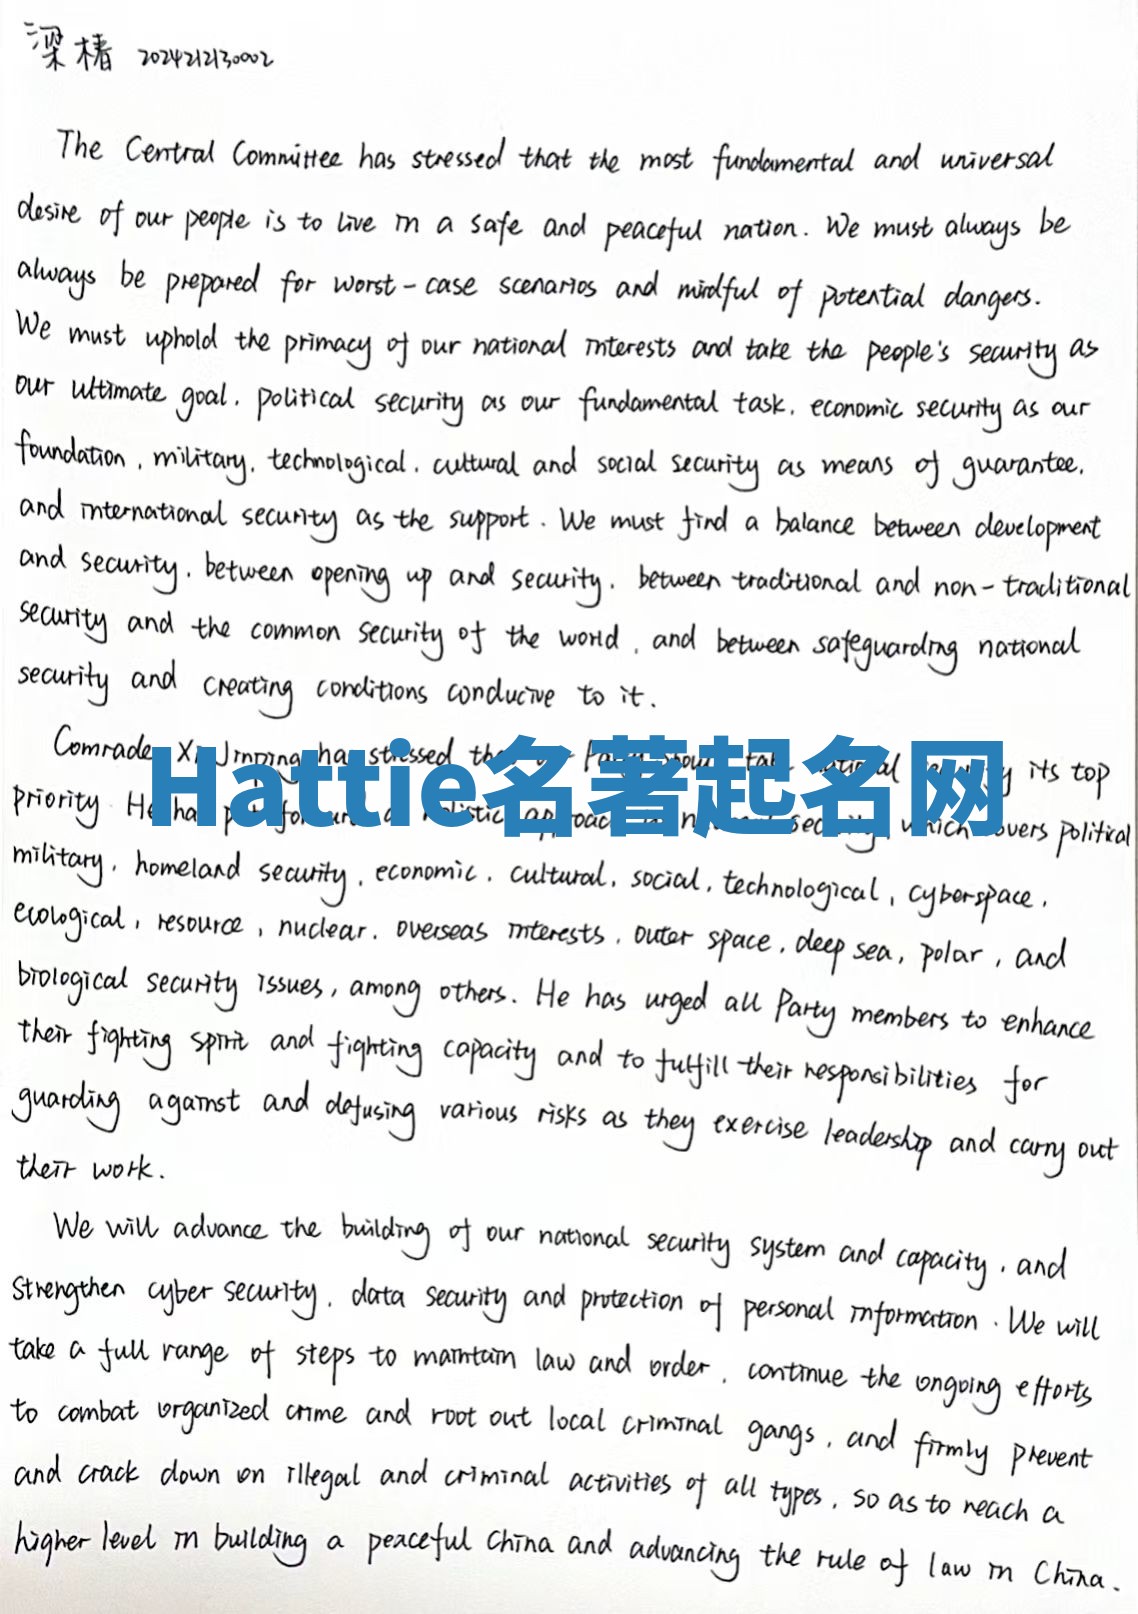 梁椿 2024212130002
The Central Committee has stressed that the most fundamental and universal
desire of our people is to live in a safe and peaceful nation. We must always be
always be prepared for worst-case scenarios and mindful of potential dangers.
We must uphold the primacy of our national interests and take the people's security as
our ultimate goal, political security as our fundamental task, economic security as our
foundation, military, technological, cultural and social security as means of guarantee,
and international security as the support. We must find a balance between development
and security, between opening up and security, between traditional and non-traditional
security and the common security of the world, and between safeguarding national
security and creating conditions conducive to it.
Comrade Xi Jinping has stressed its top
Hattie名著起名网
priority He has which covers political
military, homeland security, economic, cultural, social, technological, cyberspace,
ecological, resource, nuclear, overseas interests, outer space, deep sea, polar, and
biological security issues, among others. He has urged all Party members to enhance
their fighting spirit and fighting capacity and to fulfill their responsibilities for
guarding against and defusing various risks as they exercise leadership and carry out
their work.
We will advance the building of our national security system and capacity, and
strengthen cyber security, data security and protection of personal information. We will
take a full range of steps to maintain law and order, continue the ongoing efforts
to combat organized crime and root out local criminal gangs, and firmly prevent
and crack down on illegal and criminal activities of all types, so as to reach a
higher level in building a peaceful China and advancing the rule of law in China.